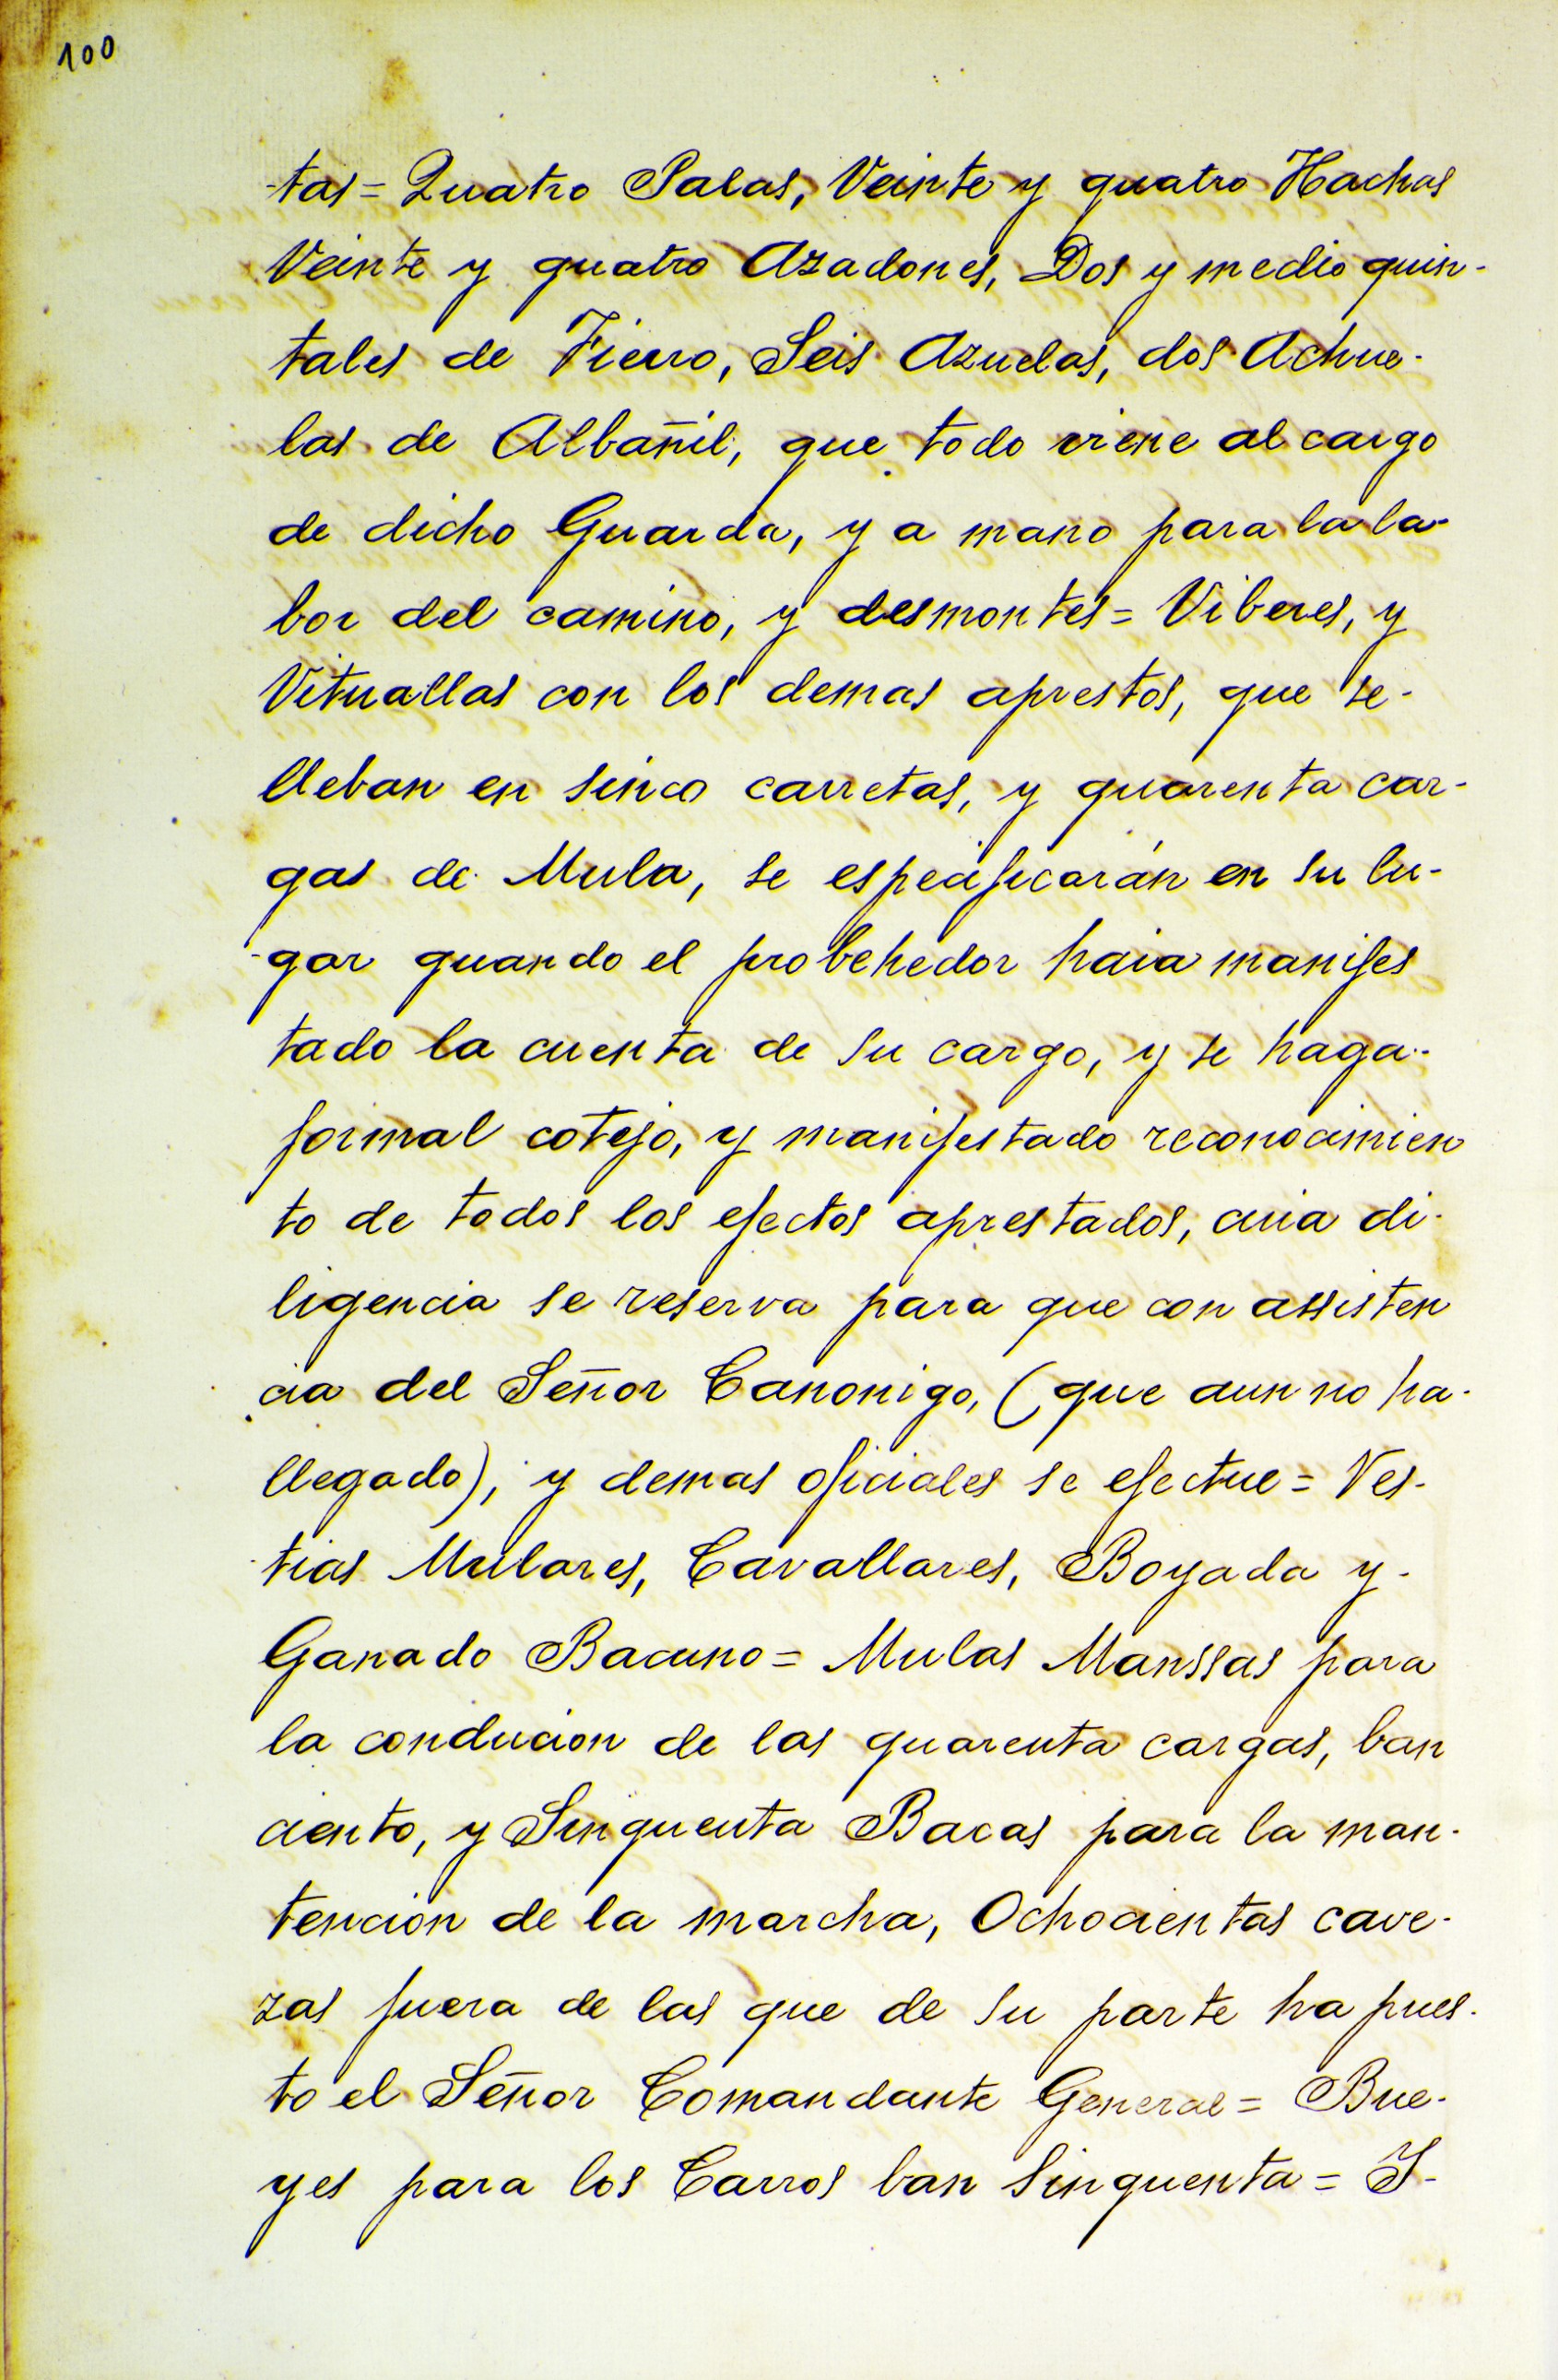 100
tas= Quatro Palas, Veinte y quatro Hachas
Veinte y quatro Azadones, Dos y medio quin-
tales de Fierro, Seis Azuelas, dos Achue-
las de Albañil, que todo viene al cargo
de dicho Guarda, y a mano para la la-
bor del camino, y desmontes= Viberes, y
Vituallas con los demas aprestos, que se-
lleban en sinco carretas, y quarenta car-
gas de Mula, se especificarán en su lu-
gar quando el probehedor haia manifes
tado la cuenta de su cargo, y se haga-
formal cotejo, y manifestado reconocimien
to de todos los efectos aprestados, cuia di-
ligencia se reserva para que con assisten
cia del Señor Canonigo, (que aun no ha-
llegado), y demas oficiales se efectue= Ves-
tias Mulares, Cavallares, Boyada y-
Ganado Bacuno= Mulas Manssas para
la conducion de las quarenta cargas, ban
ciento, y Sinquenta Bacas para la man-
tencion de la marcha, Ochocientas cave-
zas fuera de las que de su parte ha pues-
to el Señor Comandante General= Bue-
yes para los Carros ban Sinquenta= Y-